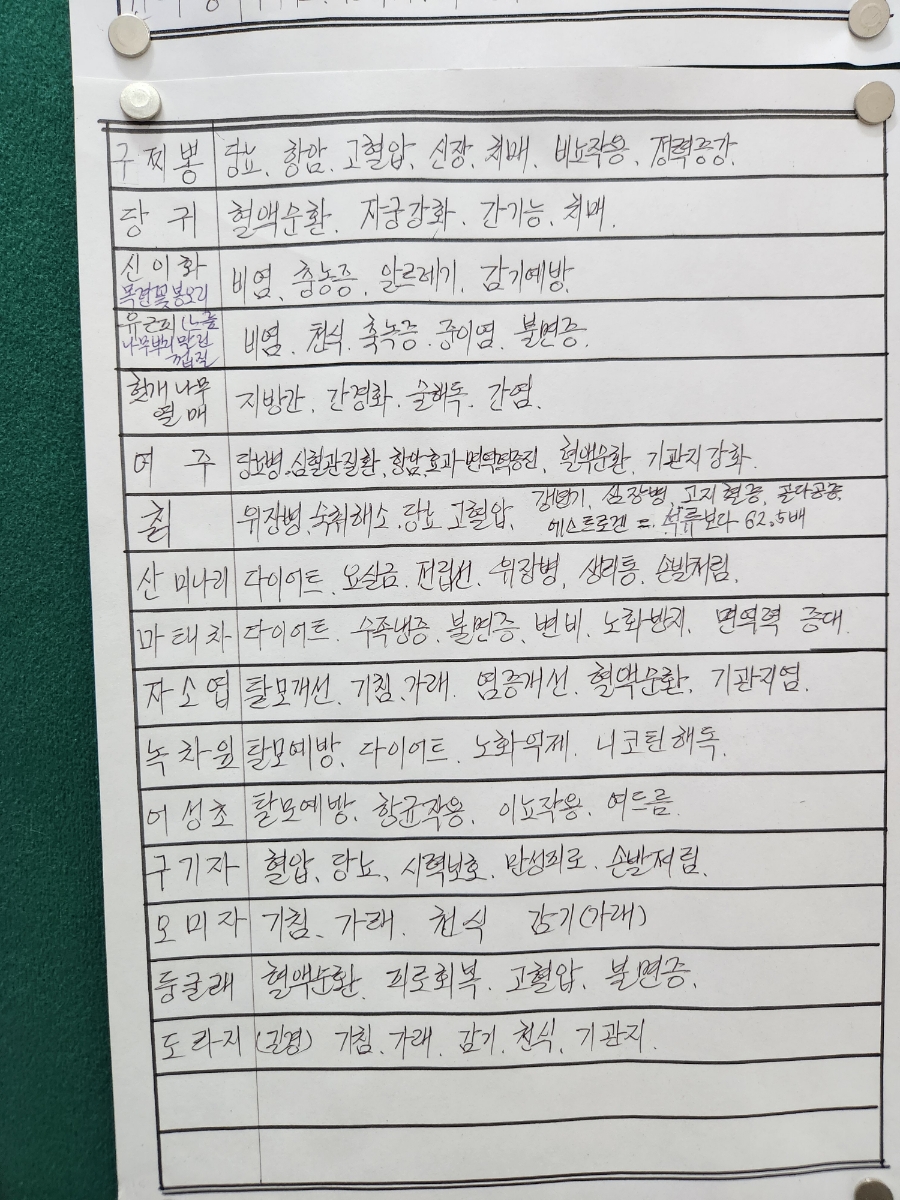 구찌뽕 당뇨, 항암, 고혈압, 신장, 치매, 비뇨작용, 정력증강.
당귀 혈액순환, 자궁강화, 간기능, 치매.
신이화 비염, 충농증, 알르레기, 감기예방.
목련꽃봉오리
유근피(느릅 비염, 천식, 축녹증, 중이염, 불면증.
나무뿌리말린
껍질
헛개나무 지방간, 간경화, 술해독, 간염.
열매
여주 당뇨병, 심혈관질환, 항암효과 면역력증진, 혈액순환, 기관지강화.
칡 위장병, 숙취해소, 당뇨, 고혈압, 갱년기, 심장병, 고지혈증, 골다공증,
에스트로겐 = 석류보다 62.5배
산미나리 다이어트, 요실금, 전립선, 위장병, 생리통, 손발저림.
마태차 다이어트, 수족냉증, 불면증, 변비, 노화방지, 면역력 증대.
자소엽 탈모개선, 기침, 가래, 염증개선, 혈액순환, 기관지염.
녹차잎 탈모예방, 다이어트, 노화억제, 니코틴해독.
어성초 탈모예방, 항균작용, 이뇨작용, 여드름
구기자 혈압, 당뇨, 시력보호, 만성피로, 손발저림.
오미자 기침, 가래, 천식 감기(가래)
둥굴래 혈액순환, 피로회복, 고혈압, 불면증.
도라지 (길경) 기침, 가래, 감기, 천식, 기관지.